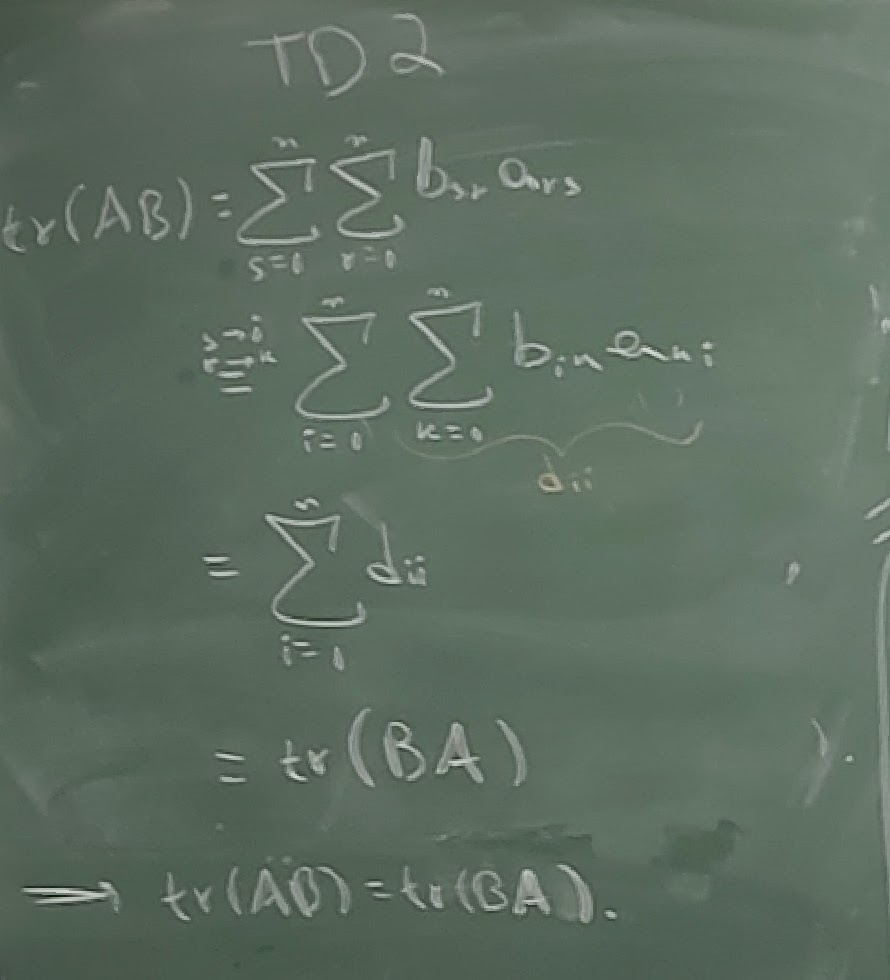 TD2
tr(AB) = \sum_{s=1}^{n} \sum_{r=1}^{n} b_{sr} a_{rs}
\overset{s \to i, r \to k}{=} \sum_{i=1}^{n} \sum_{k=1}^{n} b_{ik} a_{ki}
d_{ii}
= \sum_{i=1}^{n} d_{ii}
= tr(BA)
⟹ tr(AB) = tr(BA).